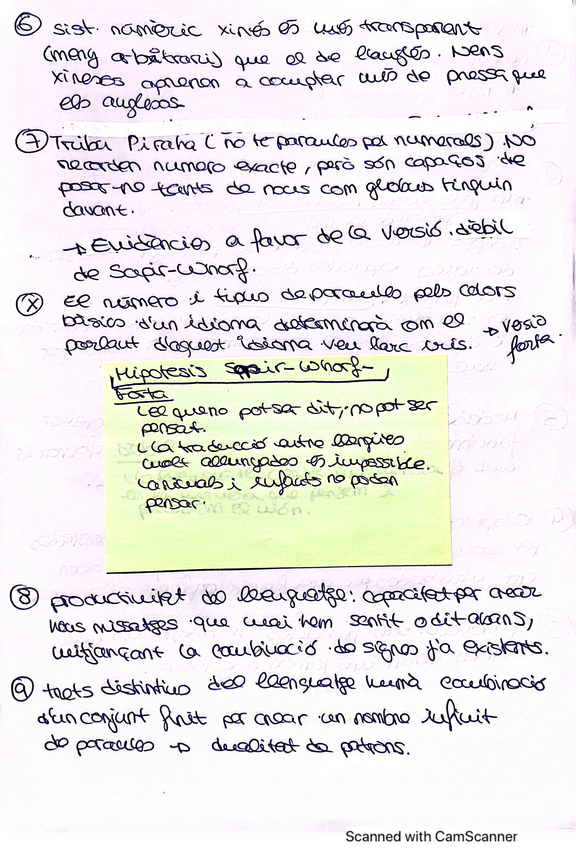 ⑥ sist. numèric xinès és més transparent
(meny arbitrari) que el de l'anglès. Nens
xinesos aprenen a comptar més de pressa que
els anglesos
⑦ Tribu Piraha (no te paraules pel numerals). No
recorden numero exacte, però són capaços de
posar-ne tants de nous com globus tinguin
davant.
→ Evidències a favor de la versió dèbil
de Sapir-Whorf.
ⓧ El número i tipus de paraules pels colors
bàsics d'un idioma determinarà com el
parlant d'aquest idioma veu l'arc iris. → versió
forta.
Hipotesis Sapir-Whorf-
Forta
↳ el que no pot ser dit, no pot ser
pensat.
↳ la traducció entre llengües
molt allunyades és impossible.
↳ animals i infants no poden
pensar.
⑧ productivitat del llenguatge: capacitat per crear
nous missatges que mai hem sentit o dit abans,
mitjançant la combinació de signes ja existents.
⑨ trets distintius del llenguatge humà combinació
d'un conjunt finit per crear un nombre infinit
de paraules → dualitat de patrons.
Scanned with CamScanner